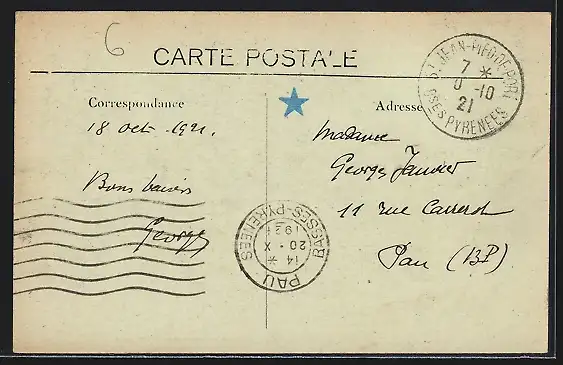 6
CARTE POSTALE
Correspondance
Adresse
ST JEAN-PIED-DE-PORT
7 *
-10
21
BSES PYRENEES
18 oct. 1921.
Madame
Georges Janvier
11 rue Carrerot
Pau (BP)
Bons baisers
Georges
BASSES-PYRENEES
14 *
20 - X
1921
PAU